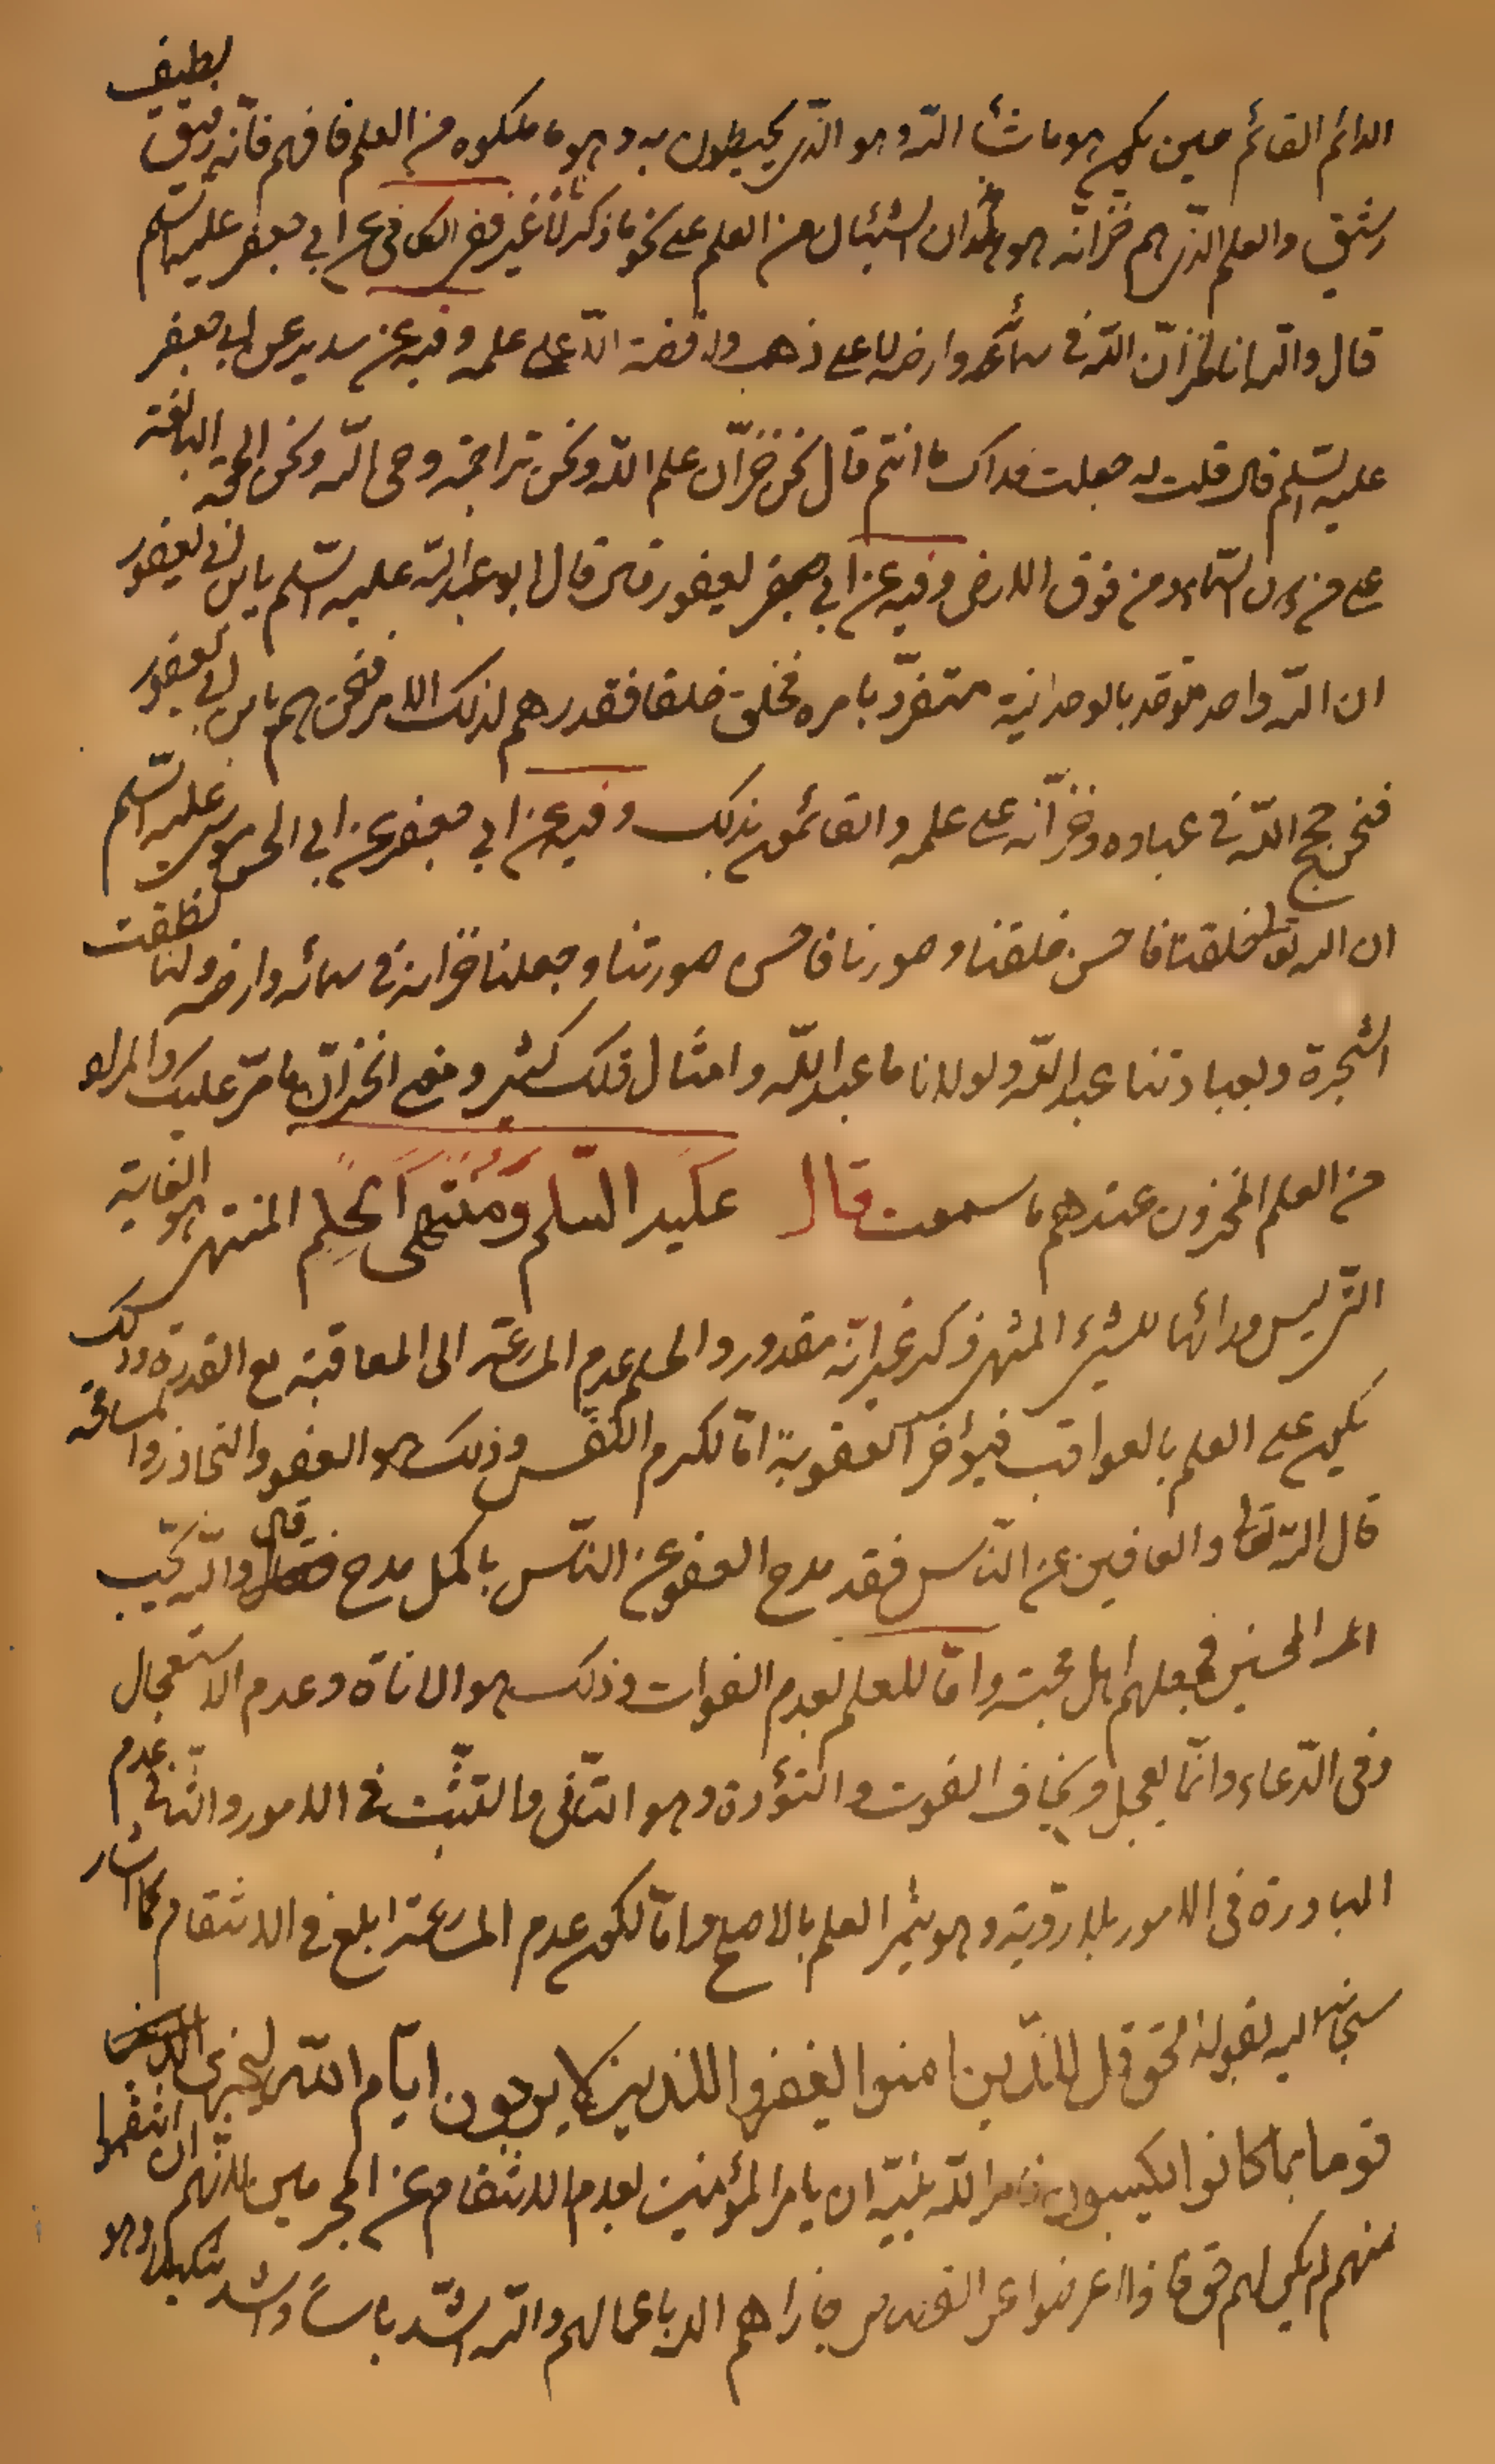 الدائم القائم حين يكون هو ما شاء الله وهو الذي يحيطون به وهو ما ملكوه من العلم فافهم فانّه دقيق لطيف
رشيق والعلم الذي هم خزّانه هو هذان الشيئان من العلم على نحو ما ذكرنا لا غير ففي الكافي عن ابي جعفر عليه السّلم
قال والله انا لخزّان الله في سمائه وارضه لا على ذهب ولا فضة الّا على علمه وفيه عن سدير عن ابي جعفر
عليه السّلم قال قلت له جعلت فداك ما انتم قال نحن خزّان علم الله ونحن تراجمة وحى الله ونحن الحجّة البالغة
على من دون السّماء ومن فوق الارض وفيه عن ابي يعفور قال قال ابو عبد الله عليه السّلم يا بن ابي يعفور
ان الله واحد متوحّد بالوحدانية متفرّد بامره فخلق خلقا فقدرهم لذلك الامر فنحن هم يا بن ابي يعفور
فنحن حجج الله في عباده وخزّانه على علمه والقائمون بذلك وفيه عن ابي جعفر عن ابي الحسن موسى عليه السّلم
ان الله تعالى خلقنا فاحسن خلقنا وصورنا فاحسن صورتنا وجعلنا خزانه في سمائه وارضه ولنا نطقت
الشجرة وبعبادتنا عبد الله ولولانا ما عبد الله وامثال ذلك كثير ومعنى الخزّان ما مرّ عليك والمراد
من العلم المخزون عندهم ما سمعت قال عليه السّلم وَمُنْتَهَى الْحِلْمِ المنتهى هو الغاية
التي ليس ورائها للشيء المنتهى ذكر غير انّه مقدور والحلم عدم المسارعة الى المعاقبة مع القدرة وذلك
يكون على العلم بالعواقب فيؤخر العقوبة امّا لكرم النّفس وذلك هو العفو والتجاوز والمسامحة
قال الله تعالى والعافين عن النّاس فقد مدح العفو عن النّاس باكمل مدح قال والله يحبّ
المحسنين فجعلهم اهل محبته وامّا للعلم بعدم الفوات وذلك هو الاناة وعدم الاستعجال
وفى الدّعاء وانّما يعجل من يخاف الفوت والتؤدة وهو التأنى والتثبت في الامور والتأنى عدم
المبادرة فى الامور بلا رويّة وهو يثمر العلم بالاصلح وامّا لكون عدم المسارعة ابلغ في الانتقام كما اشار
سبحانه اليه بقوله الحق قل للّذين امنوا يغفروا للذين لا يرجون ايّام اللّه ليجزى
قوما بما كانوا يكسبون فامر اللّه نبيّه ان يامر المؤمنين بعدم الانتقام عن المجرمين لانّهم ان انتقموا
منهم لم يكن لهم حق فاذا اعرضوا عن القصاص جازاهم الله باعمالهم والله اشدّ باساً واشد تنكيلا وهو